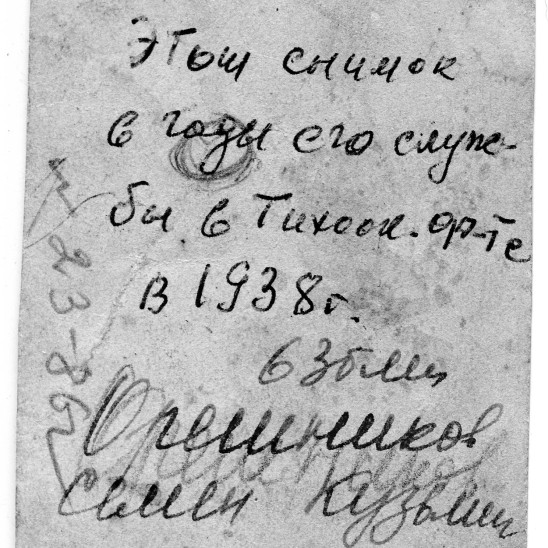 Этот снимок
в годы его служ-
бы в Тихоок. ф-те
в 1938 г.
Орешников
Семен Кузьмич
23-86